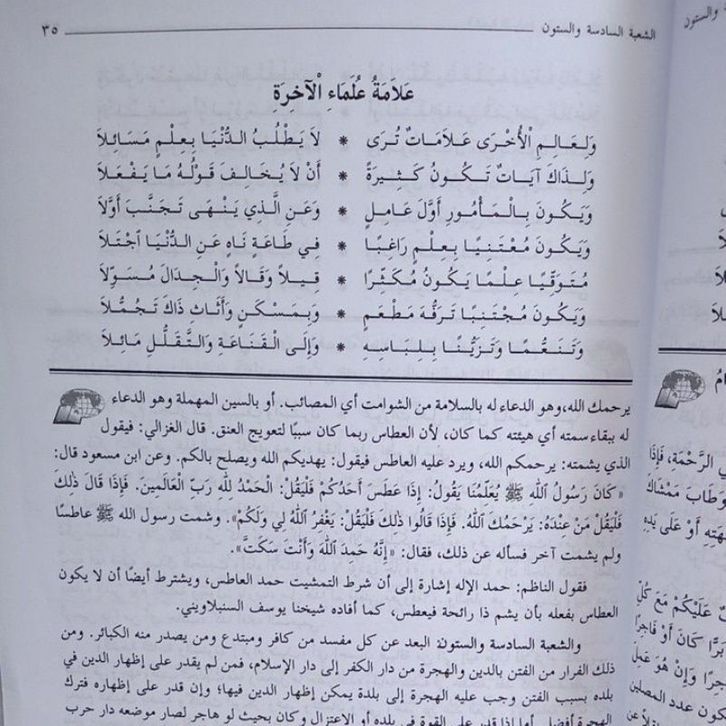 الشعبة السادسة والستون
٣٥
عَلَامَةُ عُلَمَاءِ الْآخِرَةِ
وَلِعَالِمِ الْأُخْرَى عَلَامَاتٌ تُرَى * لَا يَطْلُبُ الدُّنْيَا بِعِلْمٍ مَسَائِلَا
وَلِذَاكَ آيَاتٌ تَكُونُ كَثِيرَةً * أَنْ لَا يُخَالِفَ قَوْلُهُ مَا يَفْعَلَا
وَيَكُونَ بِالْمَأْمُورِ أَوَّلَ عَامِلٍ * وَعَنِ الَّذِي يَنْهَى تَجَنَّبَ أَوَّلَا
وَيَكُونَ مُعْتَنِيًا بِعِلْمٍ رَاغِبًا * فِي طَاعَةٍ نَاهٍ عَنِ الدُّنْيَا اجْتَلَا
مُتَوَقِّيًا عِلْمًا يَكُونُ مُكَثِّرًا * قِيلًا وَقَالًا وَالْجِدَالَ مُسَوِّلَا
وَيَكُونَ مُجْتَنِبًا تَرَفُّهَ مَطْعَمٍ * وَبِمَسْكَنٍ وَأَثَاثِ ذَاكَ تَجَمُّلَا
وَتَنَعُّمًا وَتَزَيُّنًا بِلِبَاسِهِ * وَإِلَى الْقَنَاعَةِ وَالتَّقَلُّلِ مَائِلَا
يرحمك الله،وهو الدعاء له بالسلامة من الشوامت أي المصائب. أو بالسين المهملة وهو الدعاء
له ببقاء سمته أي هيئته كما كان، لأن العطاس ربما كان سببًا لتعويج العنق. قال الغزالي: فيقول
الذي يشمته: يرحمكم الله، ويرد عليه العاطس فيقول: يهديكم الله ويصلح بالكم. وعن ابن مسعود قال:
«كَانَ رَسُولُ اللَّهِ ﷺ يُعَلِّمُنَا يَقُولُ: إِذَا عَطَسَ أَحَدُكُمْ فَلْيَقُلْ: الْحَمْدُ لِلَّهِ رَبِّ الْعَالَمِينَ. فَإِذَا قَالَ ذٰلِكَ
فَلْيَقُلْ مَنْ عِنْدَهُ: يَرْحَمُكَ اللَّهُ. فَإِذَا قَالُوا ذٰلِكَ فَلْيَقُلْ: يَغْفِرُ اللَّهُ لِي وَلَكُمْ». وشمت رسول الله ﷺ عاطسًا
ولم يشمت آخر فسأله عن ذلك، فقال: «إِنَّهُ حَمِدَ اللَّهَ وَأَنْتَ سَكَتَّ».
فقول الناظم: حمد الإله إشارة إلى أن شرط التشميت حمد العاطس، ويشترط أيضًا أن لا يكون
العطاس بفعله بأن يشم ذا رائحة فيعطس، كما أفاده شيخنا يوسف السنبلاويني.
والشعبة السادسة والستون: البعد عن كل مفسد من كافر ومبتدع ومن يصدر منه الكبائر. ومن
ذلك الفرار من الفتن بالدين والهجرة من دار الكفر إلى دار الإسلام، فمن لم يقدر على إظهار الدين في
بلده بسبب الفتن وجب عليه الهجرة إلى بلدة يمكن إظهار الدين فيها؛ وإن قدر على إظهاره فترك
الهجرة أفضل، أما إذا قدر على القوة في بلده أو الاعتزال وكان بحيث لو هاجر لصار موضعه دار حرب